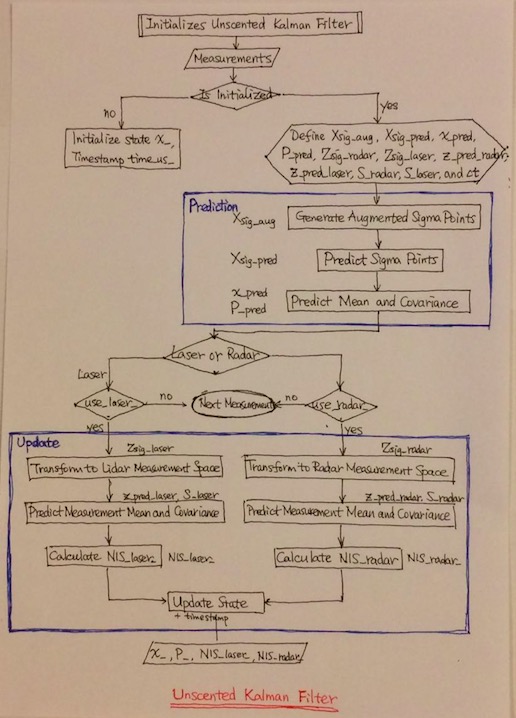 Initializes Unscented Kalman Filter
Measurements
Is Initialized
no
yes
Initialize state x_,
Timestamp time_us_
Define Xsig_aug, Xsig_pred, x_pred,
P_pred, Zsig_radar, Zsig_laser, z_pred_radar,
z_pred_laser, S_radar, S_laser, and ct
Prediction
Xsig_aug
Generate Augmented Sigma Points
Xsig_pred
Predict Sigma Points
x_pred
P_pred
Predict Mean and Covariance
Laser or Radar
Laser
use_laser_
no
Next Measurement
no
use_radar_
yes
yes
Update
Zsig_laser
Zsig_radar
Transform to Lidar Measurement Space
Transform to Radar Measurement Space
z_pred_laser, S_laser
z_pred_radar, S_radar
Predict Measurement Mean and Covariance
Predict Measurement Mean and Covariance
Calculate NIS_laser_
NIS_laser_
Calculate NIS_radar_
NIS_radar_
Update State
+ timestamp
x_, P_, NIS_laser_, NIS_radar_
Unscented Kalman Filter